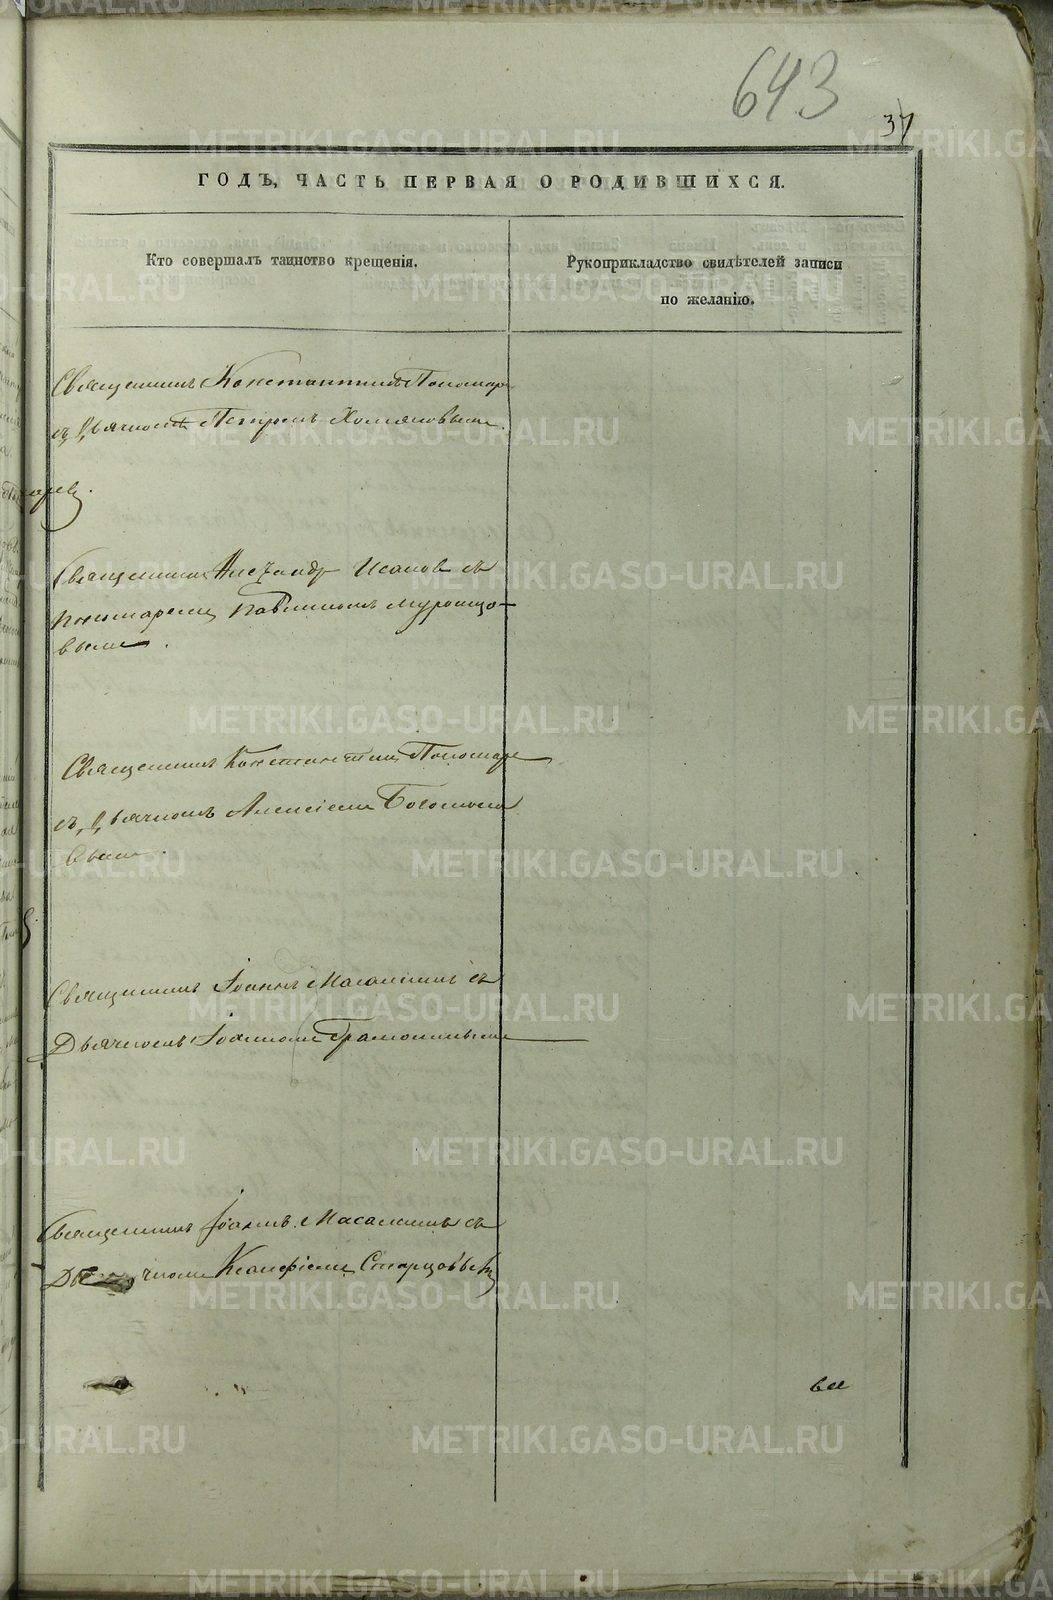 643
37
ГОДЪ, ЧАСТЬ ПЕРВАЯ О РОДИВШИХСЯ.
Кто совершалъ таинство крещенія.
Рукоприкладство свидѣтелей записи
по желанію.
Священникъ Константинъ Пономар
съ Дьячкомъ Петромъ Хомяковымъ.
Священникъ Александр Исаков съ
пономаремъ Павлиномъ Муромцо-
вымъ.
Священникъ Константинъ Пономаре
съ Дьячкомъ Алексіемъ Богомоло
вымъ.
Священникъ Іоаннъ Масалкинъ съ
Дьячкомъ Іоанномъ
Священникъ Іоаннъ Масалкинъ съ
чкомъ Старцовымъ
METRIKI.GASO-URAL.RU